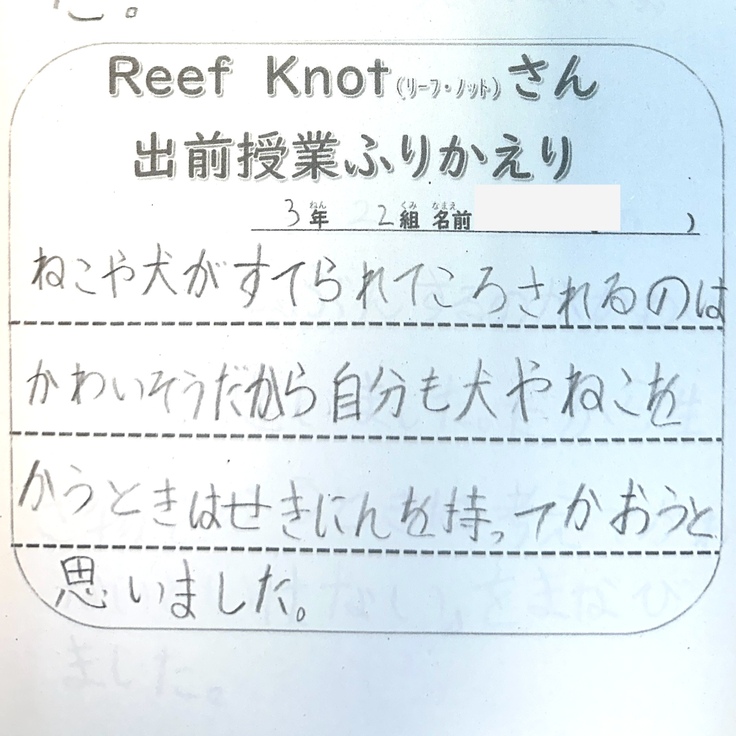 た。
Reef Knot(リーフ・ノット)さん
出前授業ふりかえり
3年 2組 名前
ねこや犬がすてられてころされるのは
かわいそうだから自分も犬やねこを
かうときはせきにんを持ってかおうと
思いました。